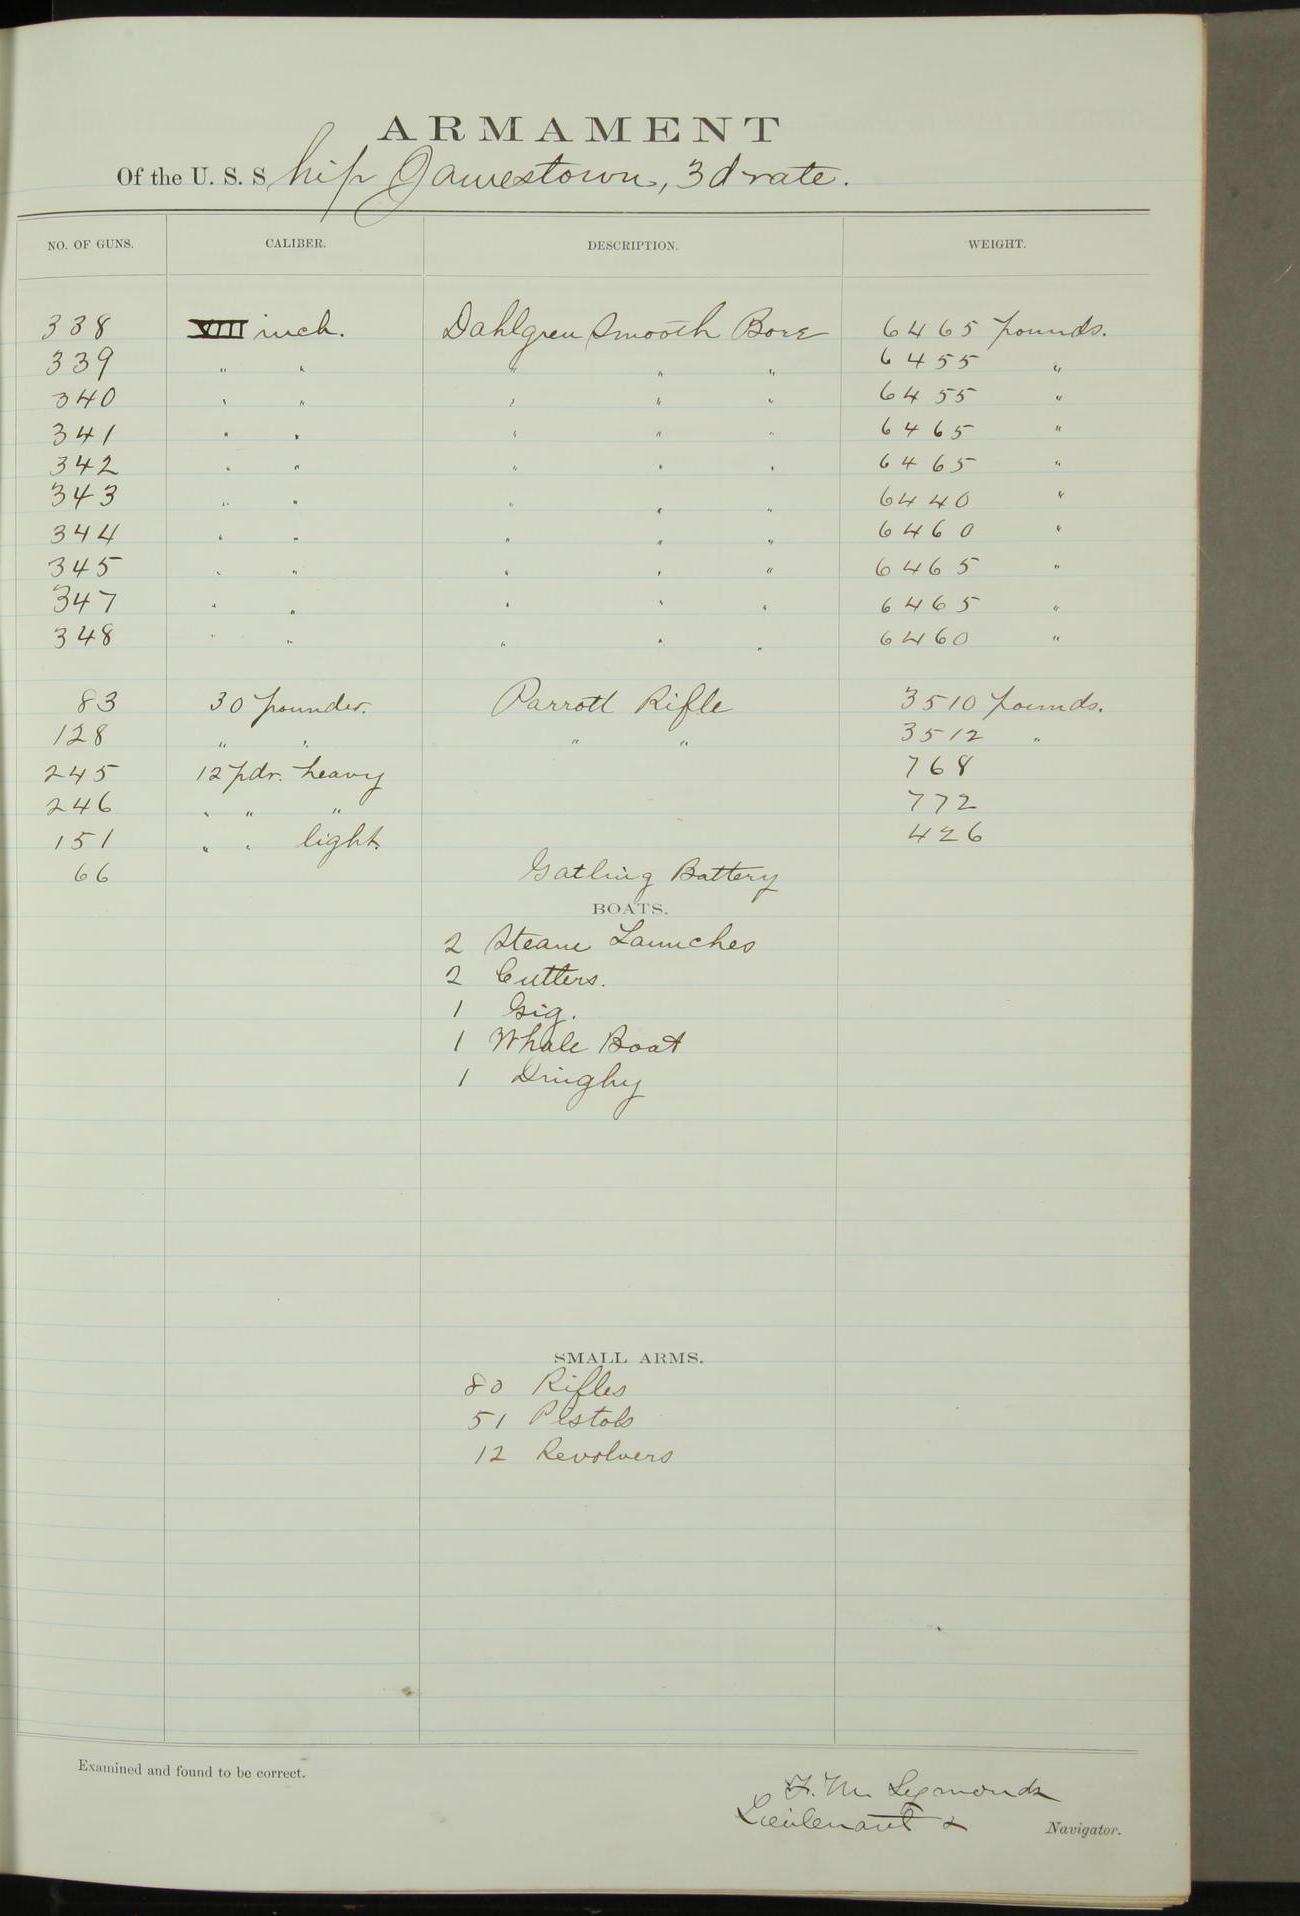 ARMAMENT
Of the U. S. Ship Jamestown, 3d rate.
NO. OF GUNS. CALIBER. DESCRIPTION. WEIGHT.
338 VIII inch. Dahlgren Smooth Bore 6465 pounds.
339 " " " " " 6455 "
340 " " " " " 6455 "
341 " " " " " 6465 "
342 " " " " " 6465 "
343 " " " " " 6440 "
344 " " " " " 6460 "
345 " " " " " 6465 "
347 " " " " " 6465 "
348 " " " " " 6460 "
83 30 pounder. Parrott Rifle 3510 pounds.
128 " " " " 3512 "
245 12 pdr. heavy 768
246 " " " 772
151 " " light. 426
66 Gatling Battery
BOATS.
2 Steam Launches
2 Cutters.
1 Gig.
1 Whale Boat
1 Dinghy
SMALL ARMS.
80 Rifles
51 Pistols
12 Revolvers
Examined and found to be correct.
F. M. Symonds
Lieutenant & Navigator.